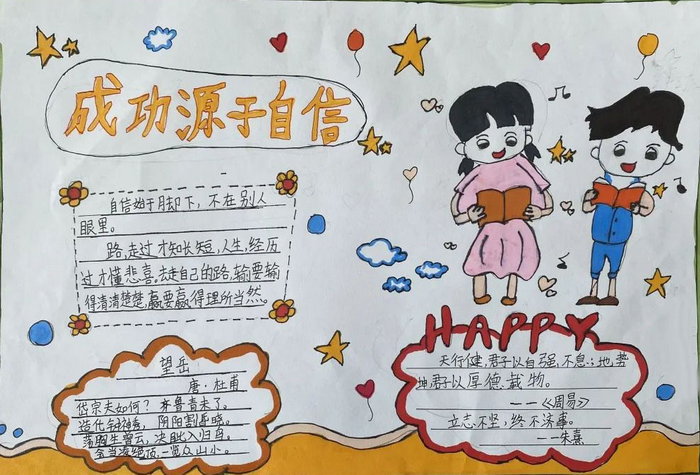 成功源于自信
自信始于脚下，不在别人
眼里。
路，走过才知长短，人生，经历
过才懂悲喜。去走自己的路，输要输
得清清楚楚，赢要赢得理所当然。
望岳
唐·杜甫
岱宗夫如何？齐鲁青未了。
造化钟神秀，阴阳割昏晓。
荡胸生曾云，决眦入归鸟。
会当凌绝顶，一览众山小。
HAPPY
天行健，君子以自强不息；地势
坤君子以厚德载物。
——《周易》
立志不坚，终不济事。
——朱熹